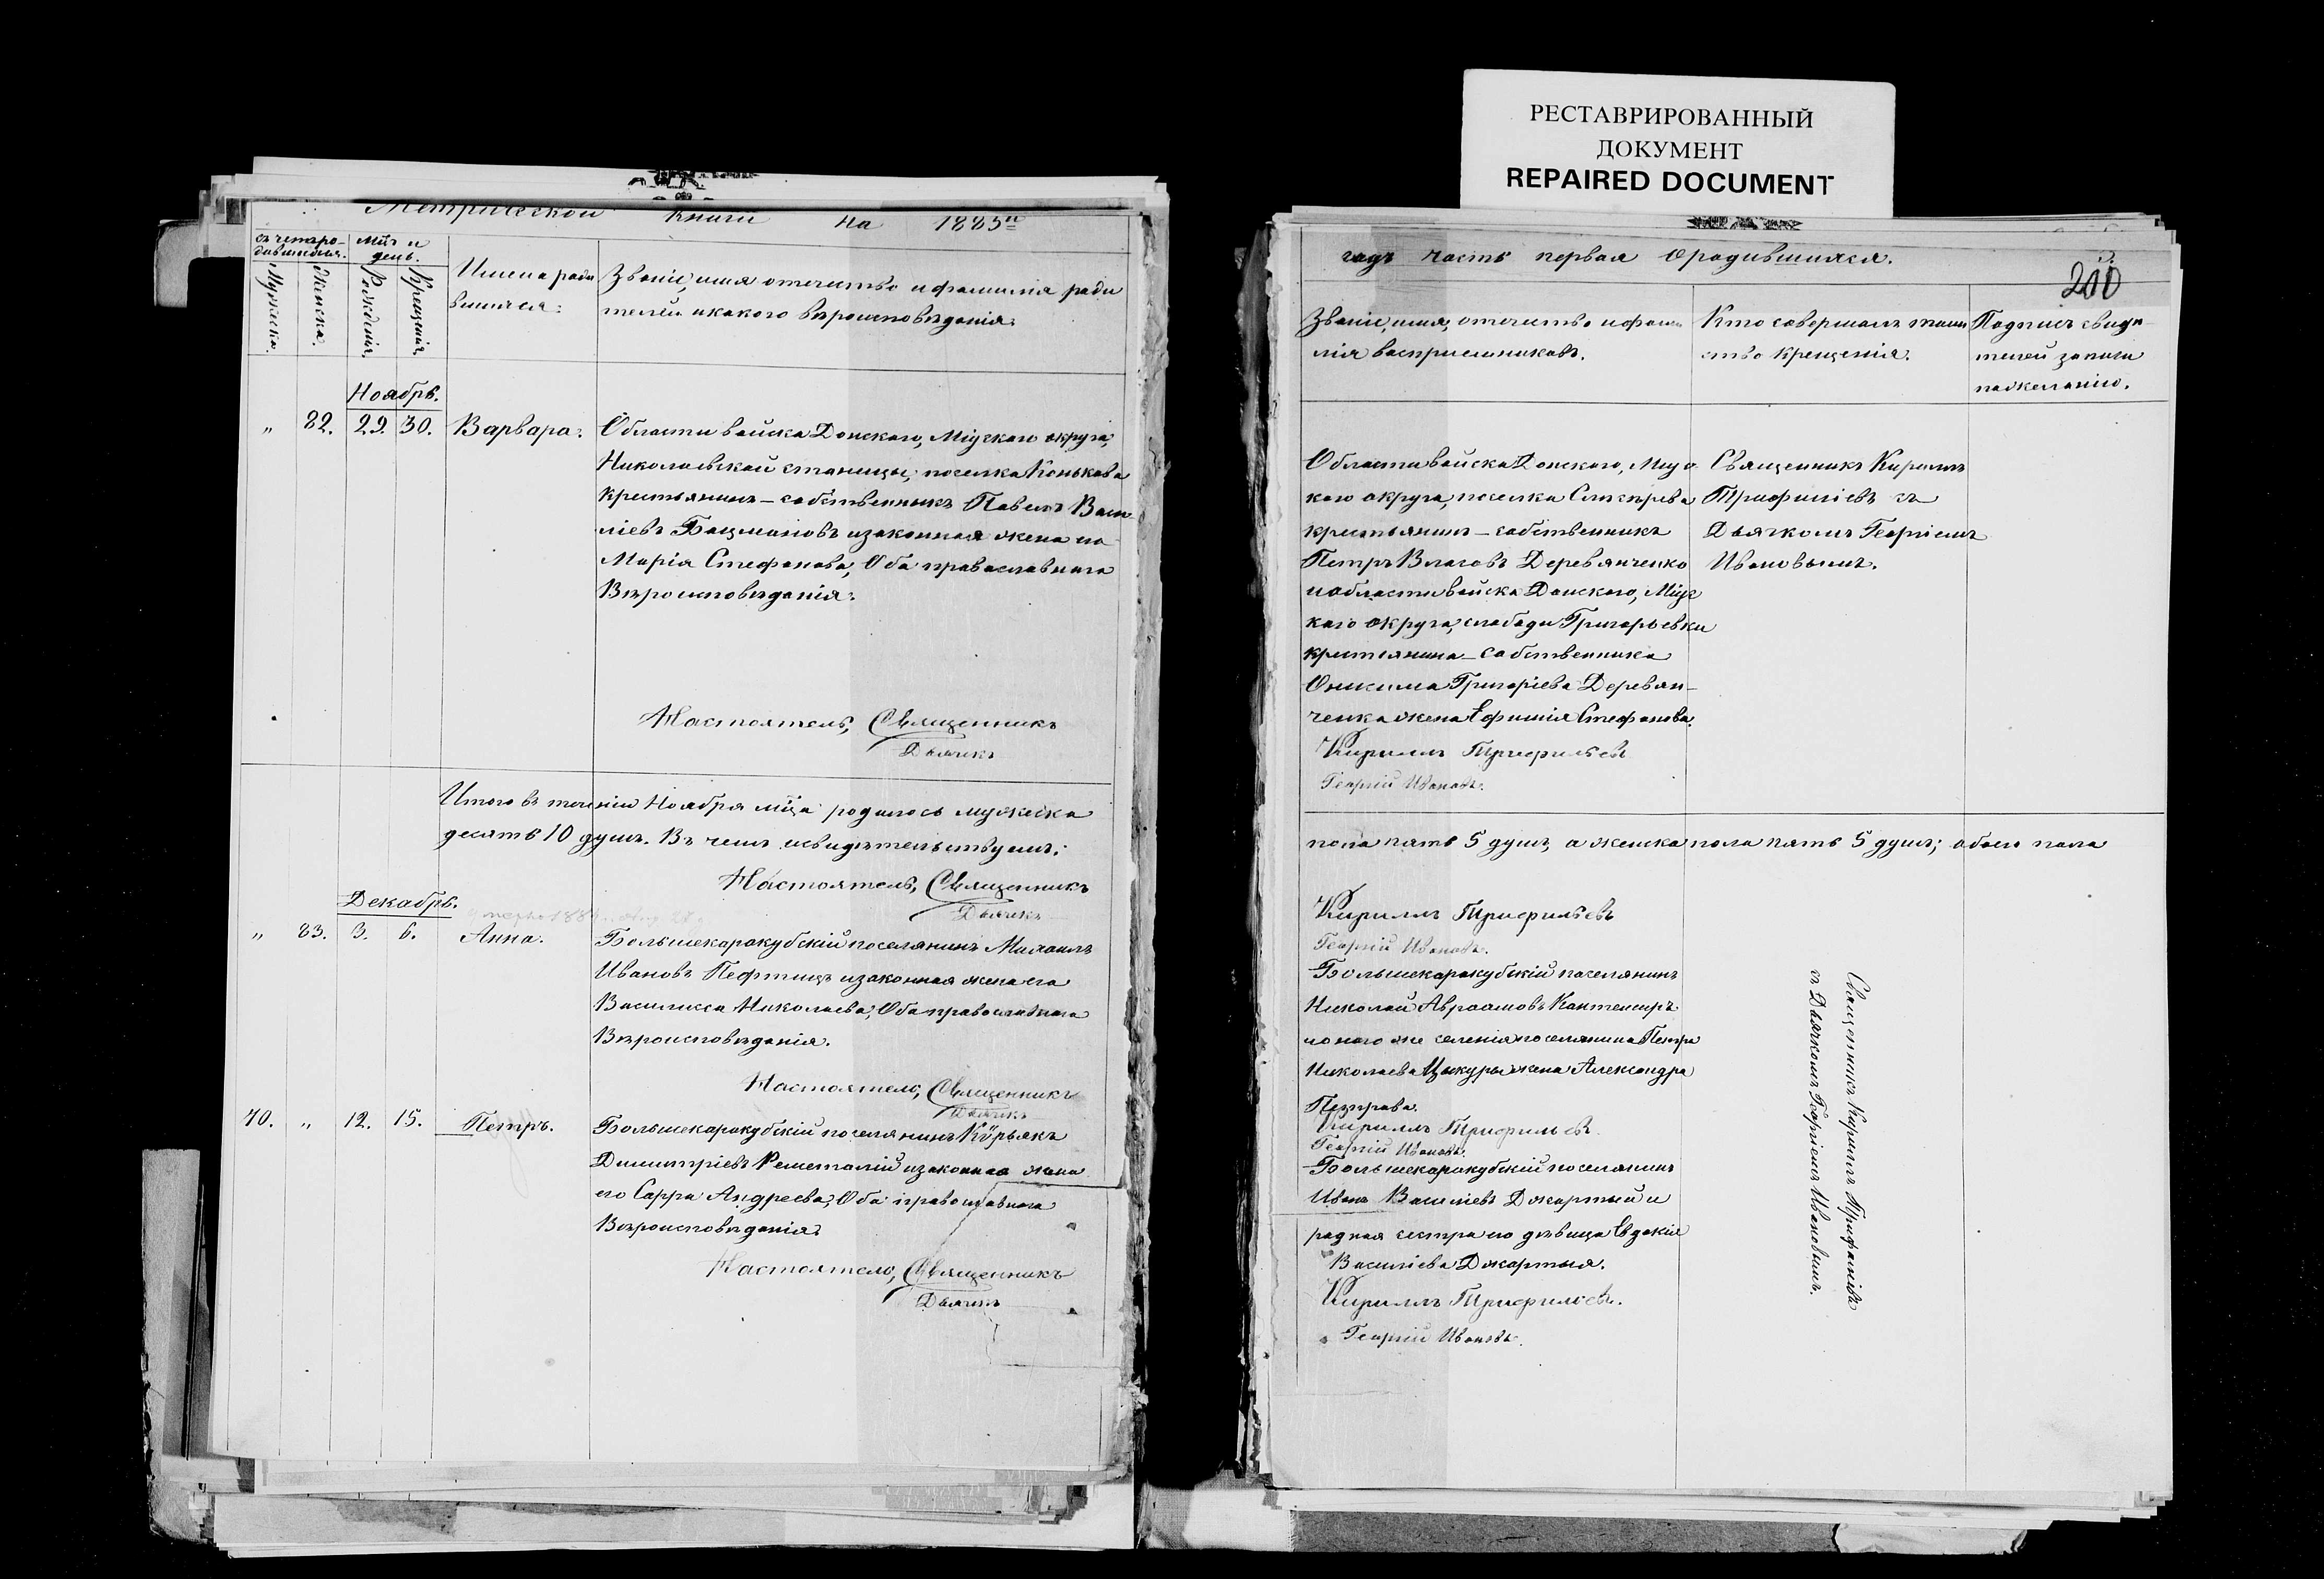 РЕСТАВРИРОВАННЫЙ
ДОКУМЕНТ
REPAIRED DOCUMENT
Метрической книги на 1885й
Мужеска. Женска. Рожденія. Крещенія.
Мѣс. и день.
Имена роди
вшихся:
Званіе, имя отечество и фамилія роди
телей и какого вѣроисповѣданія.
Ноябрь.
„ 82. 29. 30. Варвара.
Области войска Донского, Міускаго округа,
Николаевской станицы, поселка Конькова
крестьянинъ–собственникъ Павелъ Васи
ліевъ Боцмановъ и законная жена его
Марія Стефанова, Оба православнаго
Вѣроисповѣданія.
Настоятель, Священникъ
Дьячекъ
Итого въ теченіи Ноября мѣца родилось мужска
десять 10 душъ. Въ чемъ свидѣтельствуемъ:
Настоятель, Священникъ
Дьячекъ
Декабрь.
„ 83. 3. 6. Анна.
Большекаракубскій поселянинъ Михаилъ
Ивановъ Пефтицъ и законная жена его
Василисса Николаева, Оба православнаго
Вѣроисповѣданія.
Настоятель, Священникъ
Дьячекъ
70. „ 12. 15. Петръ.
Большекаракубскій поселянинъ Кѵрьякъ
Димитріевъ Решетилій и законная жена
его Сарра Андреева, Оба православнаго
Вѣроисповѣданія.
Настоятель, Священникъ
Дьячекъ
годъ часть первая о родившихся.
200
Званіе, имя, отечество и фами
лія воспріемниковъ.
Кто совершалъ таин
ство крещенія.
Подпись свидѣ
телей записи
по желанію.
Области войска Донского, Міус
каго округа, поселка
крестьянинъ–собственникъ
Петръ Власовъ Деревянченко
и области войска Донского, Міус
каго округа, слободы Григорьевки
крестьянина–собственника
Онисима Григоріева Деревян–
ченка жена Ефимія Стефанова.
Кириллъ Трифильевъ
Георгій Ивановъ.
Священникъ Кириллъ
Трифиліевъ съ
Дьячкомъ Георгіемъ
Ивановымъ.
пола пять 5 душъ, а женска пола пять 5 душъ; обоего пола
Кириллъ Трифильевъ
Георгій Ивановъ.
Большекаракубскій поселянинъ
Николай Авраамовъ Кантемиръ
и оного же селенія поселянина Петра
Николаева Цыкуры жена Александра
Петрова.
Кириллъ Трифильевъ.
Георгій Ивановъ.
Большекаракубскій поселянинъ
Иванъ Василіевъ Джартый и
родная сестра его дѣвица Евдокія
Василіева Джартыя.
Кириллъ Трифильевъ.
Георгій Ивановъ.
Священникъ Кириллъ Трифиліевъ
съ Дьячкомъ Георгіемъ Ивановымъ.